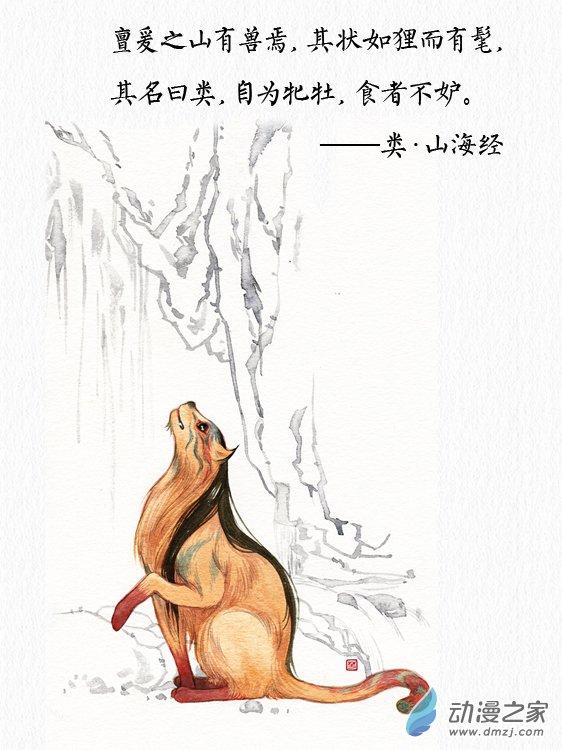 亶爰之山有兽焉，其状如狸而有髦，
其名曰类，自为牝牡，食者不妒。
——类·山海经
动漫之家
www.dmzj.com